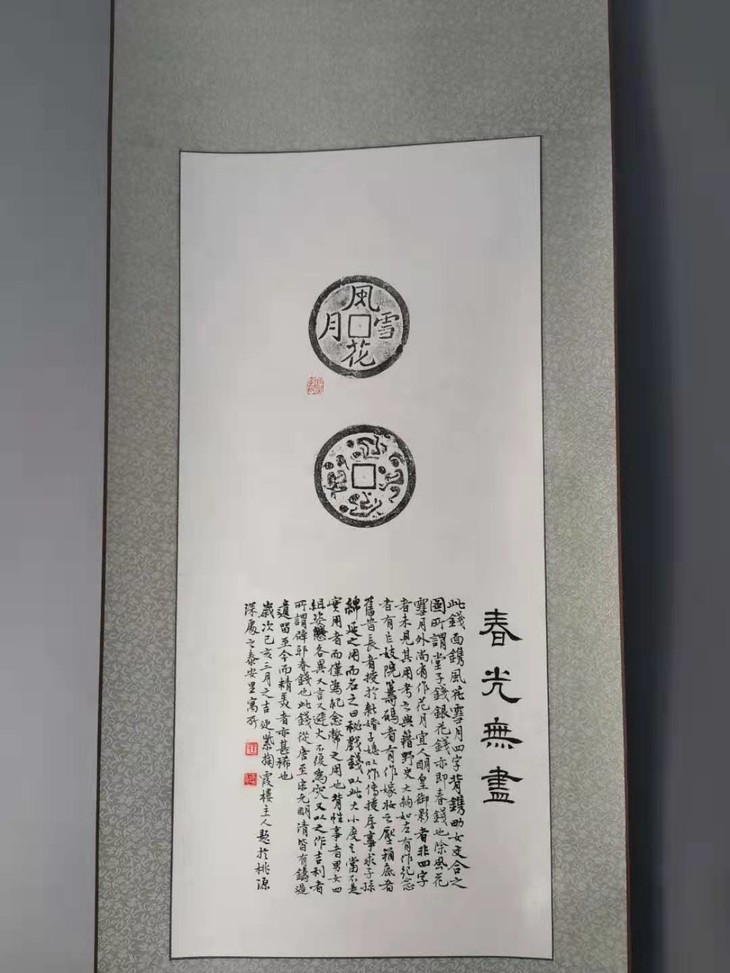 風花雪月
春光無盡
此錢面鐫風花雪月四字背鐫男女交合之
圖所謂堂子錢銀花錢亦即春錢也除風花
雪月外尚有作花月宜人明皇御影者非四字
者未見其用考之典籍野史大約如左有作紀念
者有言妓院籌碼者有作嫁妝之壓箱底者
舊昔長者授於新婚子媳以作傳接房事求子孫
綿延之用而名之曰祕戲錢以此大小度之當不是
實用者而僅為紀念幣之用也背性事者男女四
組姿態各異又言又避火不復為灾又以之作吉利者
所謂辟邪春錢也此錢從唐至宋元明清皆有鑄造
遺留至今而精美者亦甚稀也
歲次己亥三月之吉延紫掬霞樓主人題於桃源
深處之泰安里寓所